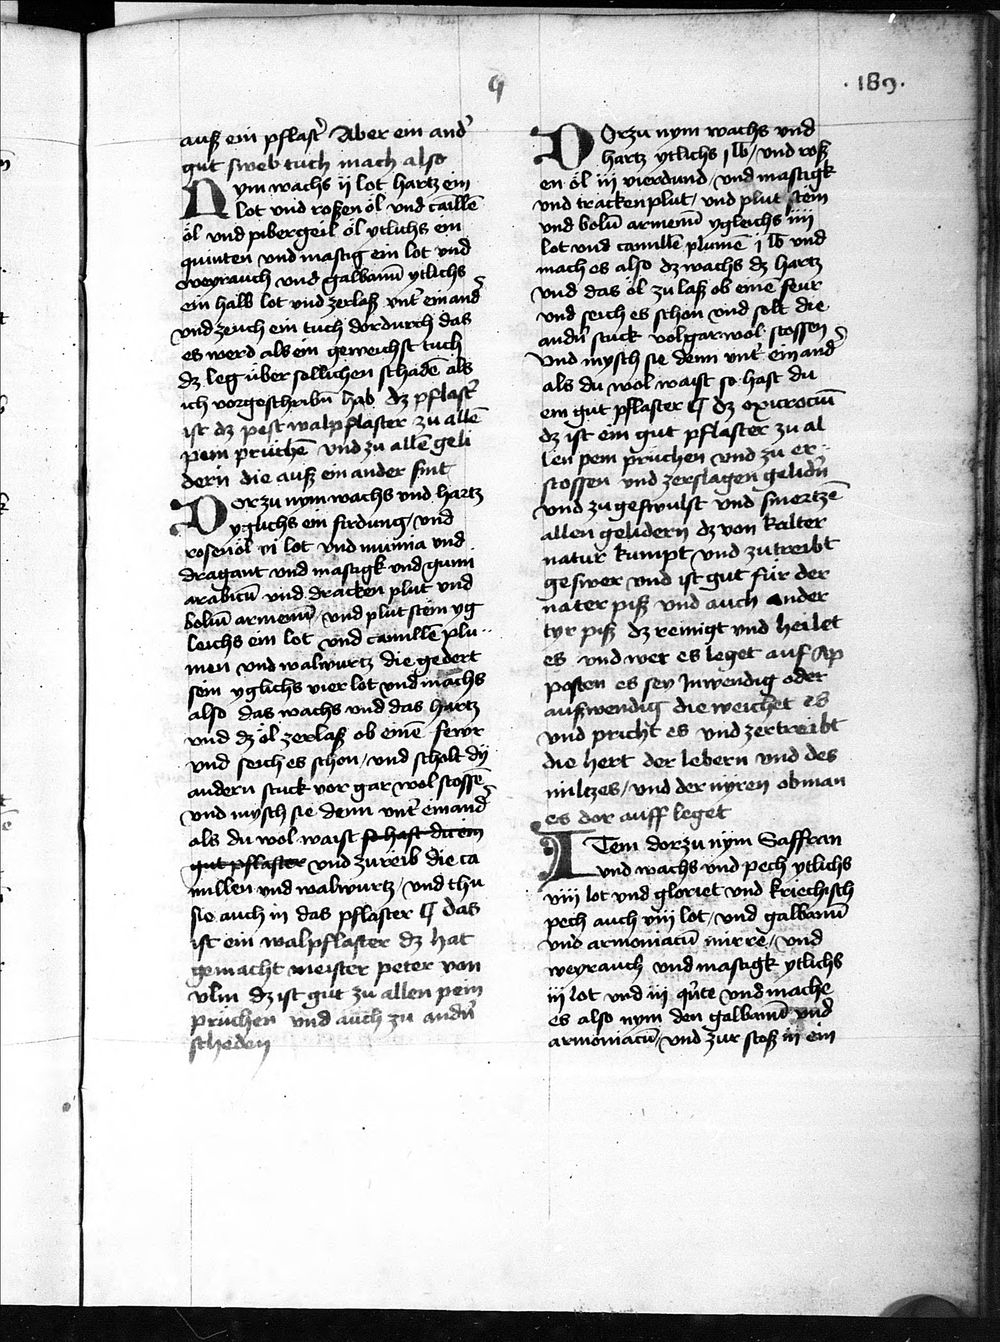 9
·189·
auß ein pflast̉ Aber ein and̉
gut sweb tuch mach also
Nym wachs ij lot hartz ein
lot vnd roßen öl vnd camillē
öl vnd pibergeil öl ytlichs ein
quinten vnd mastig ein lot vnd
weyrauch vnd galbanū ytlichs
ein halb lot vnd zerlaß vnt̉ ein and̉
vnd zeuch ein tuch dordurch das
es werd als ein geweichst tuch
dz leg über sollichen schadē als
ich vorgeschribn̄ hab dz pflast̉
ist dz pest walpflaster zu allē
pem prüchē vnd zu allē geli
dern die auß ein ander sint
Dorzu nym wachs vnd hartz
yglichs ein firdung / vnd
rosenöl vi lot vnd mumia vnd
dragant vnd mastigk vnd gumi
arabicū vnd dracken plut vnd
bolum armenū / vnd plutstein yg
leichs ein lot vnd camillē plu
men vnd walwurtz die gedert
sein yglichs vier lot vnd machs
also das wachs vnd das hartz
vnd dz öl zerlaß ob einē fewr
vnd seich es schon / vnd scholt dy
andern stuck vor gar wol stossē
vnd mysch sie denn vnt̉ einand̉
als du wol waist so hast du ein
gut pflaster vnd zureib die ca
millen vnd walwurtz / vnd thu
sie auch in das pflaster ¶ das
ist ein walpflaster dz hat
gemacht meister peter von
vlm dz ist gut zu allen pem
prüchen vnd auch zu andn̉
scheden
Dorzu nym wachs vnd
hartz ytlichs j lb / vnd roß
en öl iij vierdund / vnd mastigk
vnd tracken plut / vnd plut stein
vnd bolū armenū ygleichs iiij
lot vnd camillē plumē j lb vnd
mach es also dz wachs dz hartz
vnd das öl zu laß ob eine feur
vnd seich es schon vnd solt die
andn̉ stuck vol gar wol stossen
vnd mysch sie denn vnt̉ ein and̉
als du wol waist so hast du
ein gut pflaster ¶ dz oxicrociū
dz ist ein gut pflaster zu al
len pem prüchen vnd zu er
stossen vnd zerslagen gelidn̉
vnd zu geswulst vnd smertzē
allen gelidern dz von kalter
natur kumpt vnd zutreibt
geswer vnd ist gut für der
nater piß vnd auch ander
tyr piß dz reinigt vnd heilet
es vnd wer es leget auf Ap
posten es sey Inwendig oder
außwendig die weichet es
vnd pricht es vnd zertreibt
die hert der lebern vnd des
miltzes / vnd der nyren ob man
es dor auff leget
ITem dorzu nym Saffran
vnd wachs vnd pech ytlichs
viij lot vnd gloriet vnd kriechisch
pech auch viij lot / vnd galbanū
vnd armoniacū mirre / vnd
weyrauch vnd mastigk ytlichs
iij lot vnd iij qủte vnd mache
es also nym den galbanū vnd
armoniacū / vnd zur stoß in ein